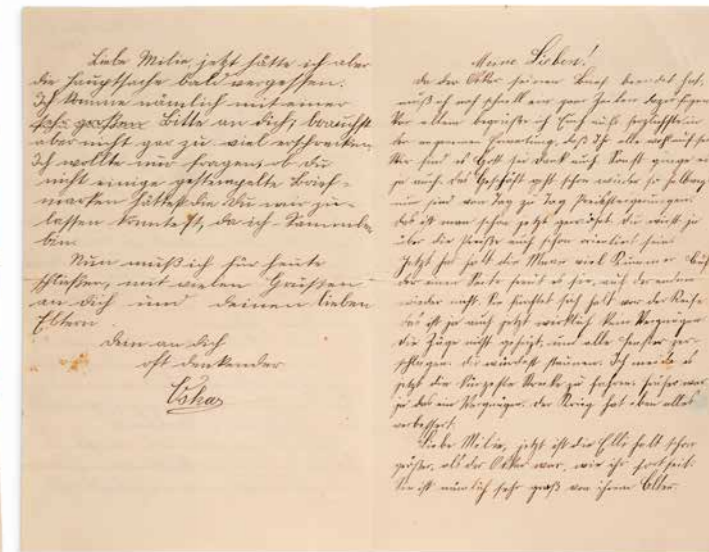 Liebe Milie, jetzt hätte ich aber
die Hauptsache bald vergessen.
Ich komme nämlich mit einer
sehr großen Bitte an dich, brauchst
aber nicht gar zu viel erschrecken.
Ich wollte nur fragen, ob du
nicht einige gestempelte Brief-
marken hättest die Du mir zu-
lassen könntest, da ich Sammler
bin.
Nun muß ich für heute
schließen, mit vielen Grüßen
an dich und deinen lieben
Eltern
Dein an dich
oft denkender
Oskar
Meine Lieben!
Da der Oskar seinen Brief beendet hat,
muß ich noch schnell ein paar Zeilen dazufügen.
Vor allem begrüße ich Euch aufs herzlichste in
der angenehmen Erwartung, daß Ihr alle wohlauf seid.
Wir sind es Gott sei Dank auch. Sonst ginge es
ja auch. Das Geschäft geht schon wieder so
nun sind von Tag zu Tag Preissteigerungen.
das ist man schon jetzt gewöhnt. Du wirst ja
über die Preise auch schon orientiert sein.
Jetzt hat halt die Mama viel Kummer. Auf
der einen Seite freut es sie, auf der andern
wieder nicht. Sie fürchtet sich halt vor der Reise
das ist ja auch jetzt wirklich kein Vergnügen
die Züge nicht geheizt, und alle Fenster zer-
schlagen. Du würdest staunen. Ich meide es
jetzt die kürzeste Strecke zu fahren. früher war
ja das ein Vergnügen. Der Krieg hat eben alles
verbessert.
Liebe Milie, jetzt ist die Elli halt schon
größer, als der Oskar war, wie ihr fort seit.
Sie ist nämlich sehr groß von ihrem Alter.